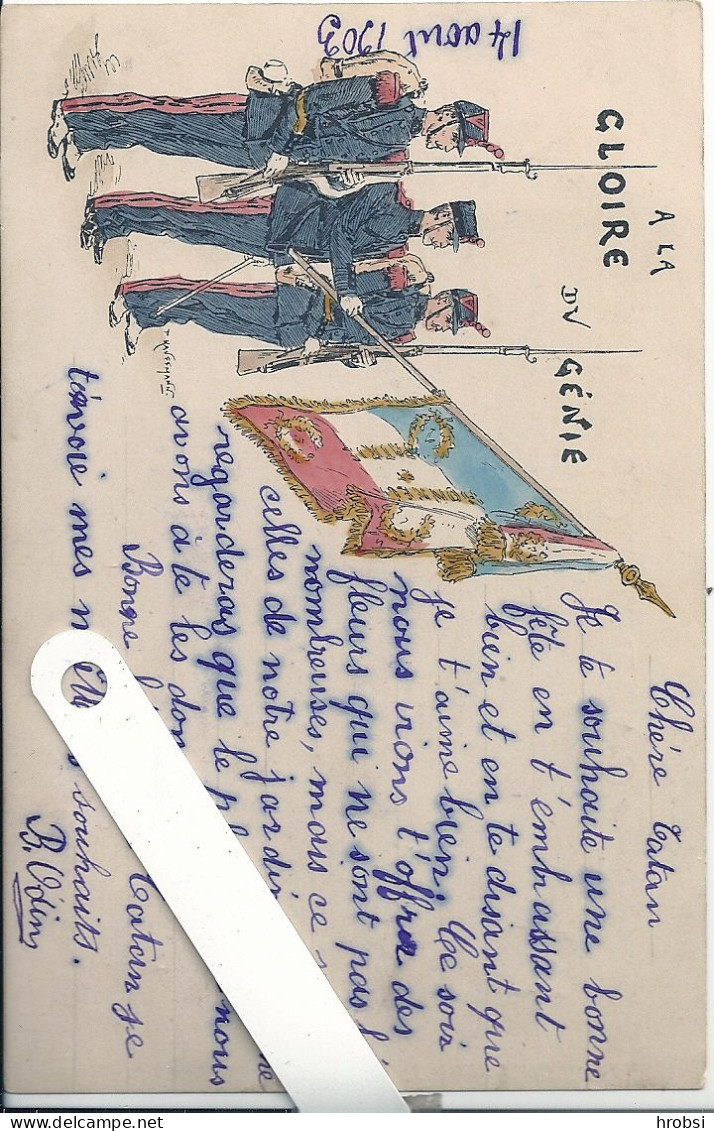 14 août 1903
A LA
GLOIRE
DU GÉNIE
Chère Tatan
Je te souhaite une bonne
fête en t'embrassant
bien et en te disant que
je t'aime bien. Ce soir
nous irons t'offrir des
fleurs qui ne sont pas
nombreuses, mais ce
celles de notre jardin
regarderas que le nous
avons à te les
Bonne Tatan je
t'envoie mes souhaits.
B. Odin
hrobsi